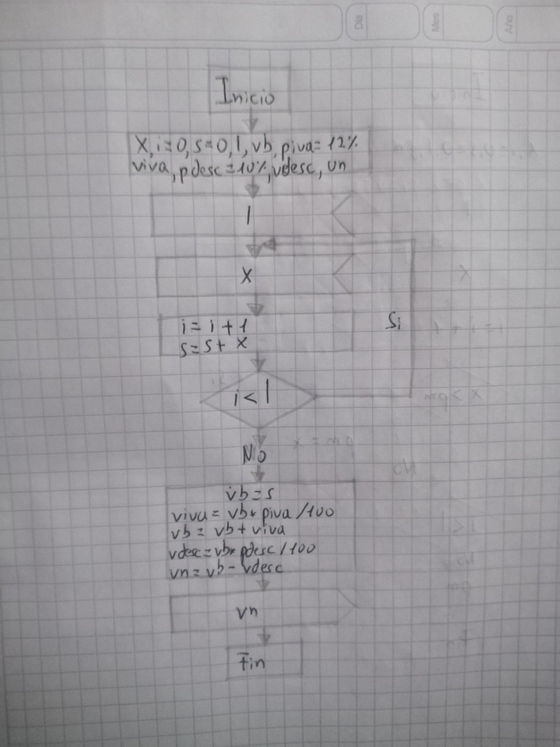 Día
Mes
Año
Inicio
X, i=0, s=0, l, vb, piva=12%
viva, pdesc=10%, vdesc, vn
l
X
i = i + 1
s = s + x
Si
i < l
No
vb = s
viva = vb * piva / 100
vb = vb + viva
vdesc = vb * pdesc / 100
vn = vb - vdesc
vn
Fin